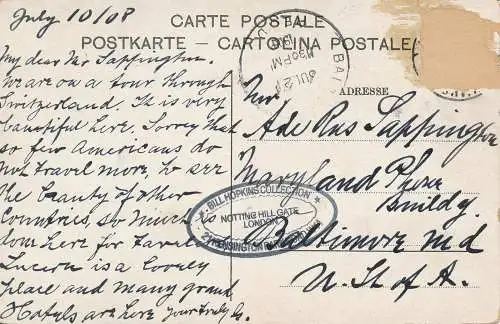 July 10/08
CARTE POSTALE
POSTKARTE - CARTOLINA POSTALE
My dear Mr Sappington.
We are on a tour through
Switzerland. It is very
beautiful here. Sorrey that
so few Americans do
not travel more, to see
the beauty of other
Countries, so much
done here for Travel
Lucern is a lovely
place and many grand
Hotels are here your truly G.
ADRESSE
Ade Rus Sappington
Maryland Phone
Buildg.
Baltimore Md
U. St of A.
JUL 21
30 PM
BAL
BILL HOPKINS COLLECTION
NOTTING HILL GATE
LONDON
KENSINGTON